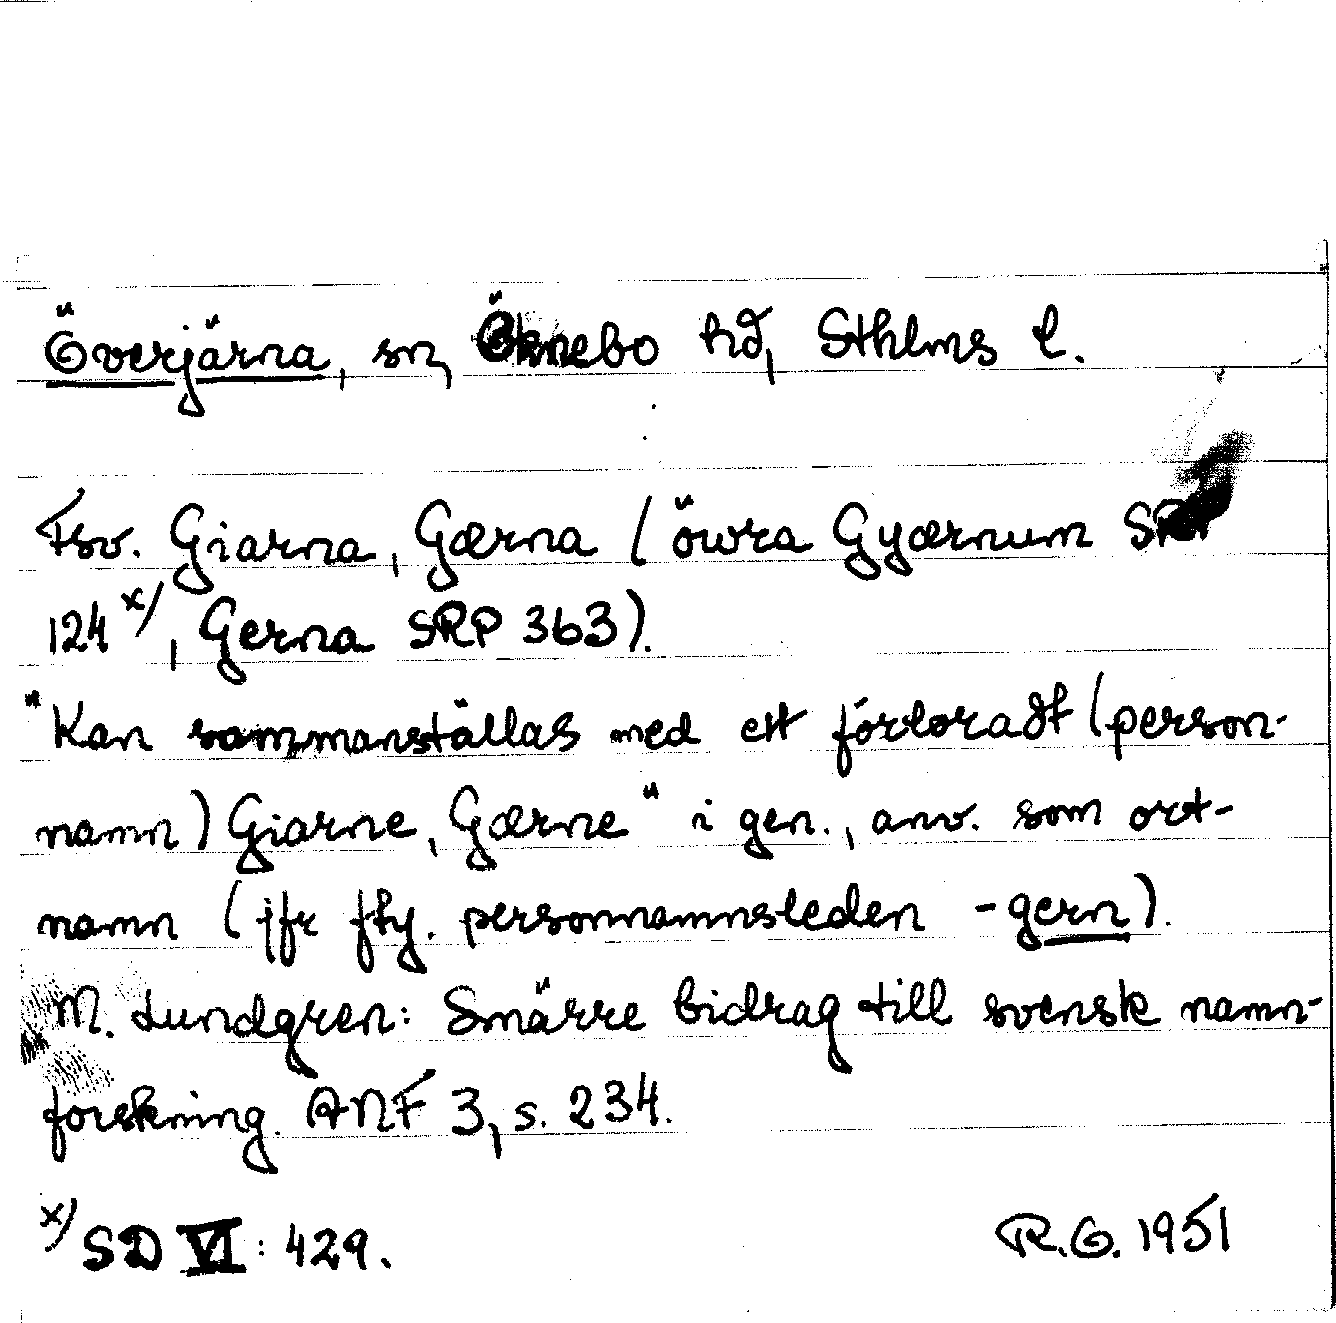 Överjärna, sn, Öknebo hd, Sthlms l.
Fsv. Giarna, Gærna (öwra Gyærnum SRP
124 x), Gerna SRP 363).
"Kan sammanställas med ett förloradt (person-
namn) Giarne, Gærne" i gen., anv. som ort-
namn (jfr fhy. personnamnsleden -gern).
M. Lundgren: Smärre bidrag till svensk namn-
forskning. ANF 3, s. 234.
x) SD VI: 429.
R.O. 1951